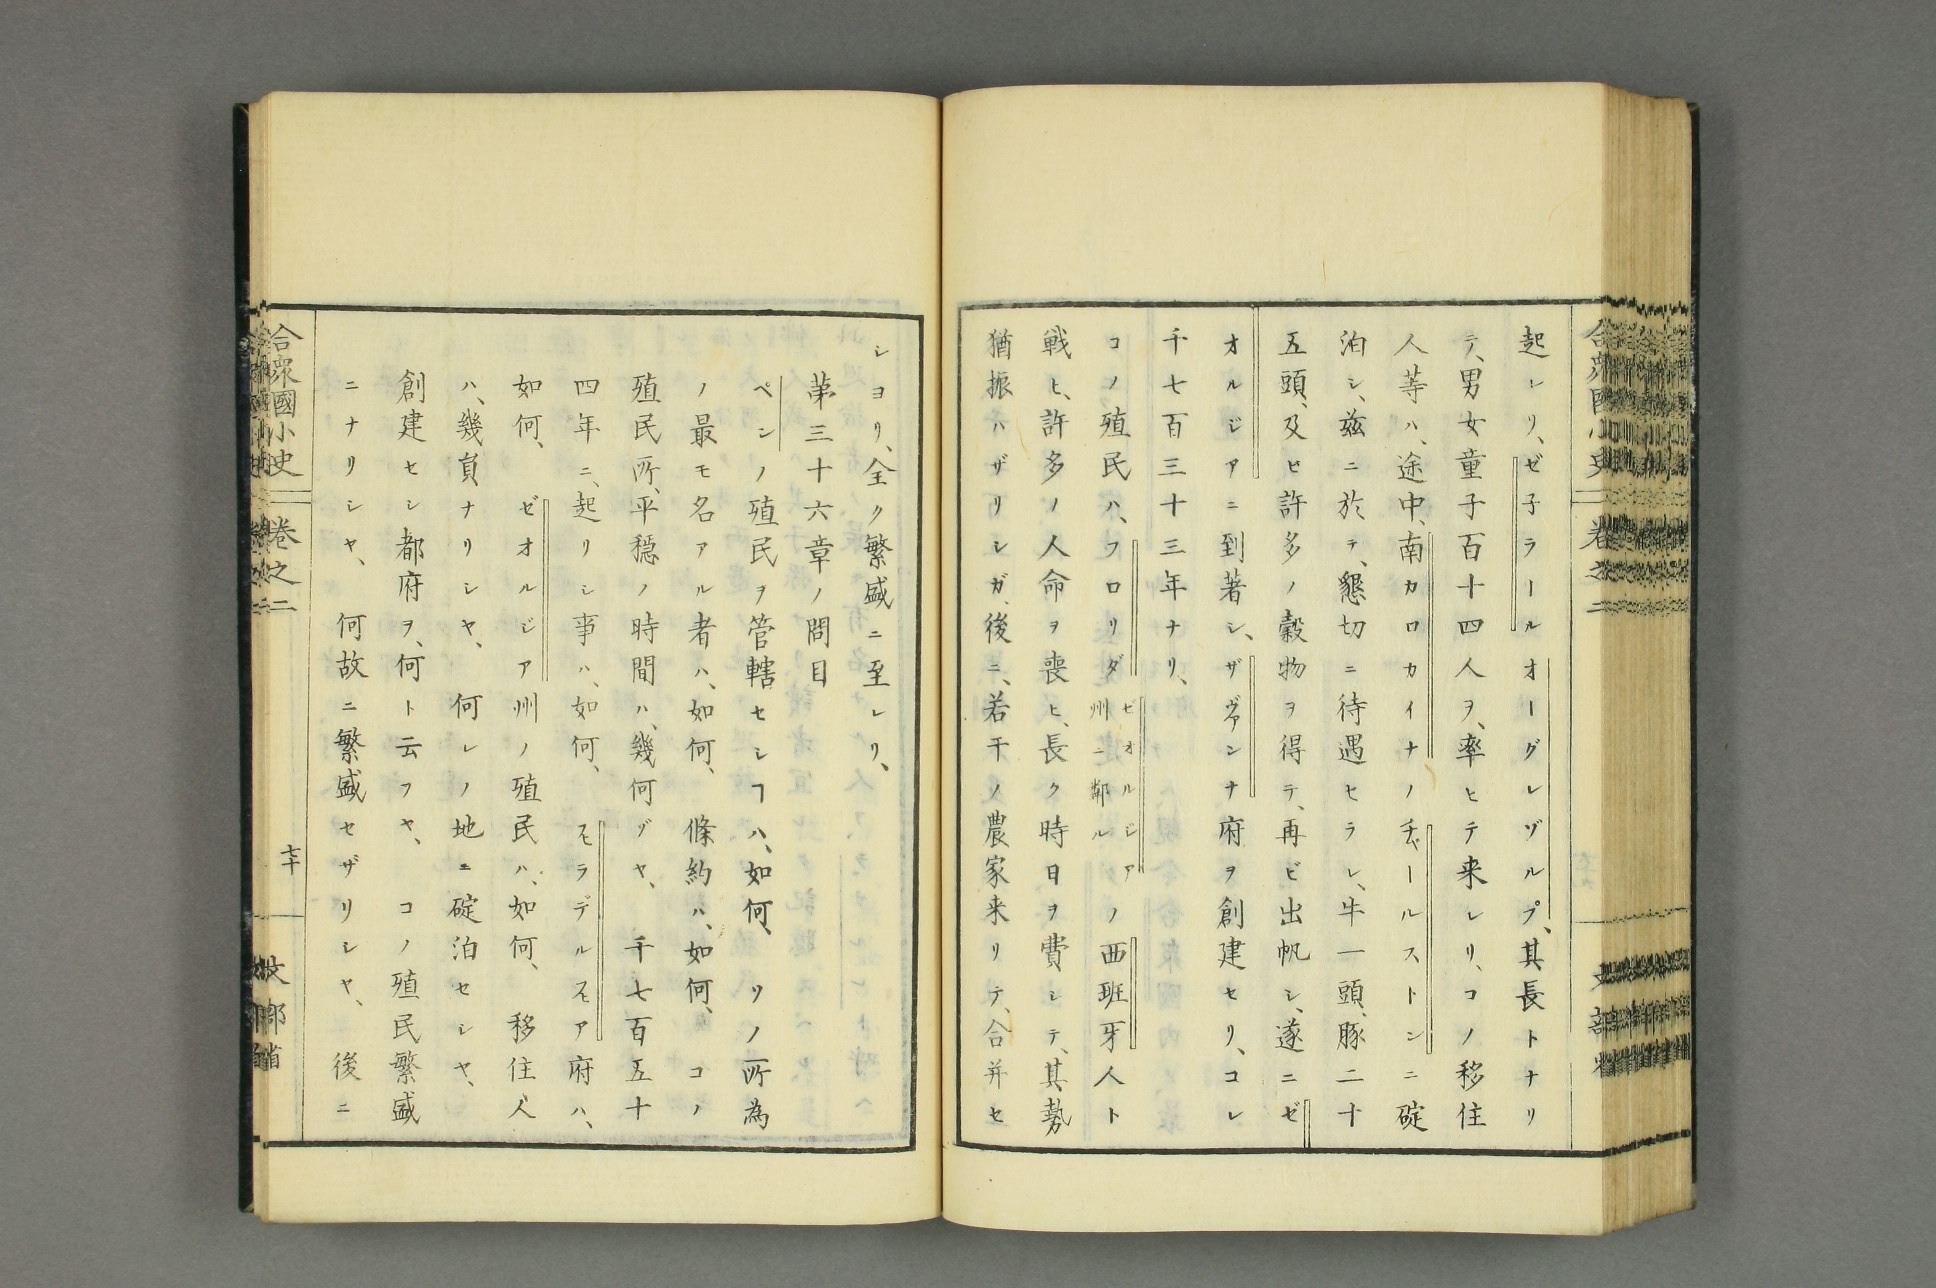 起レリ、ゼ子ラールオーグレヅルプ、其長トナリ
テ、男女童子百十四人ヲ、率ヒテ来レリ、コノ移住
人等ハ、途中、南カロカイナノチャールストンニ碇
泊シ、茲ニ於テ、懇切ニ待遇セラレ、牛一頭、豚二十
五頭、及ビ許多ノ穀物ヲ得テ、再ビ出帆シ、遂ニゼ
オルジアニ到著シ、ザヴァンナ府ヲ創建セリ、コレ
千七百三十三年ナリ、
コノ殖民ハ、フロリダゼオルジア州ニ鄰ルノ西班牙人ト
戦ヒ、許多ノ人命ヲ喪ヒ、長ク時日ヲ費シテ、其勢
猶振ハザリシガ、後ニ、若干ノ農家来リテ、合并セ
シヨリ、全ク繁盛ニ至レリ、
第三十六章ノ問目
ペンノ殖民ヲ管轄セシヿハ、如何、 ソノ所為
ノ最モ名アル者ハ、如何、 條約ハ、如何、 コノ
殖民所、平穏ノ時間ハ、幾何ゾヤ、 千七百五十
四年ニ、起リシ事ハ、如何、 ヒラデルヒア府ハ、
如何、 ゼオルジア州ノ殖民ハ、如何、 移住人
ハ、幾負ナリシヤ、 何レノ地ニ碇泊セシヤ、
創建セシ都府ヲ、何ト云フヤ、 コノ殖民繁盛
ニナリシヤ、 何故ニ繁盛セザリシヤ、 後ニ
合衆國小史 巻之二 七十 文部省